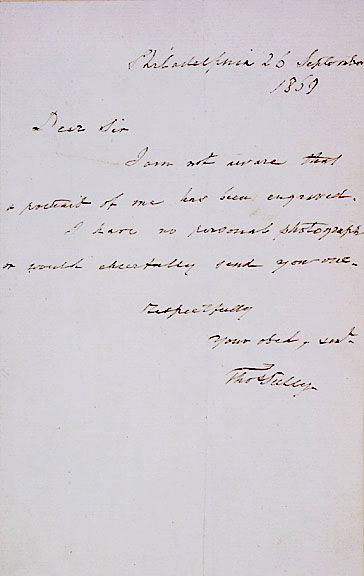 Philadelphia 26 September
1869
Dear Sir
I am not aware that
a portrait of me has been engraved.
I have no personal photograph
or would cheerfully send you one.
respectfully
Your obed, servt.
Thos Sully.